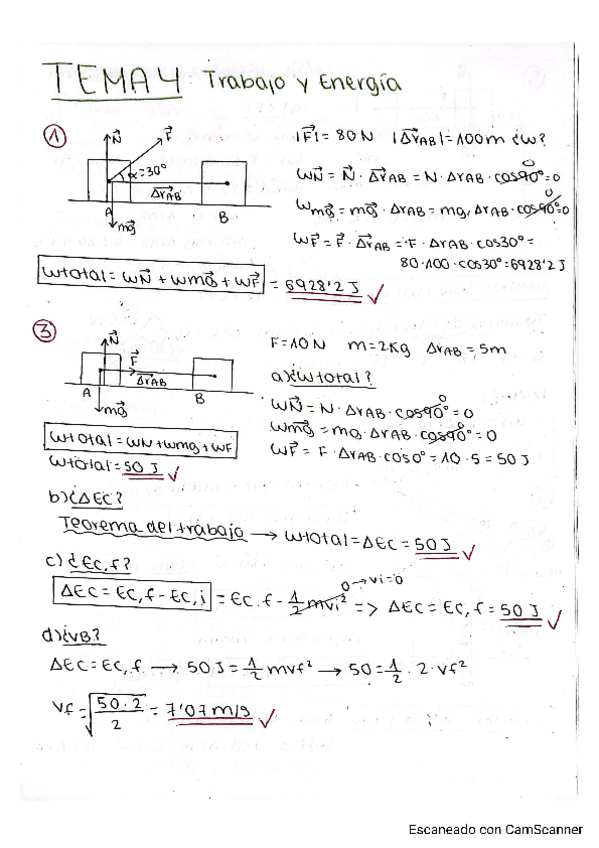 TEMA 4 Trabajo y Energía
① N⃗ F⃗ |F⃗| = 80 N |Δr⃗AB| = 100m ¿w?
α=30°
Δr⃗AB
A B
mg⃗
wN⃗ = N⃗ · Δr⃗AB = N · ΔrAB · cos90° = 0
0
wmg⃗ = mg⃗ · Δr⃗AB = mg · ΔrAB · cos90° = 0
0
wF⃗ = F⃗ · Δr⃗AB = F · ΔrAB · cos30° =
80 · 100 · cos30° = 6928'2 J
wtotal = wN⃗ + wmg⃗ + wF⃗ = 6928'2 J ✓
③ N⃗ F⃗
Δr⃗AB
A B
mg⃗
F = 10 N m = 2Kg ΔrAB = 5m
a) ¿wtotal?
wN⃗ = N · ΔrAB · cos90° = 0
0
wmg⃗ = mg · ΔrAB · cos90° = 0
0
wF⃗ = F · ΔrAB · cos0° = 10 · 5 = 50 J
wtotal = wN + wmg + wF
wtotal = 50 J ✓
b) ¿ΔEC?
Teorema del trabajo → wtotal = ΔEC = 50 J ✓
c) ¿EC,f?
ΔEC = EC,f - EC,i = EC,f - 1/2 mvi² => ΔEC = EC,f = 50 J ✓
0 → vi=0
d) ¿vB?
ΔEC = EC,f → 50 J = 1/2 mvf² → 50 = 1/2 · 2 · vf²
vf = √(50 · 2 / 2) = 7'07 m/s ✓
Escaneado con CamScanner